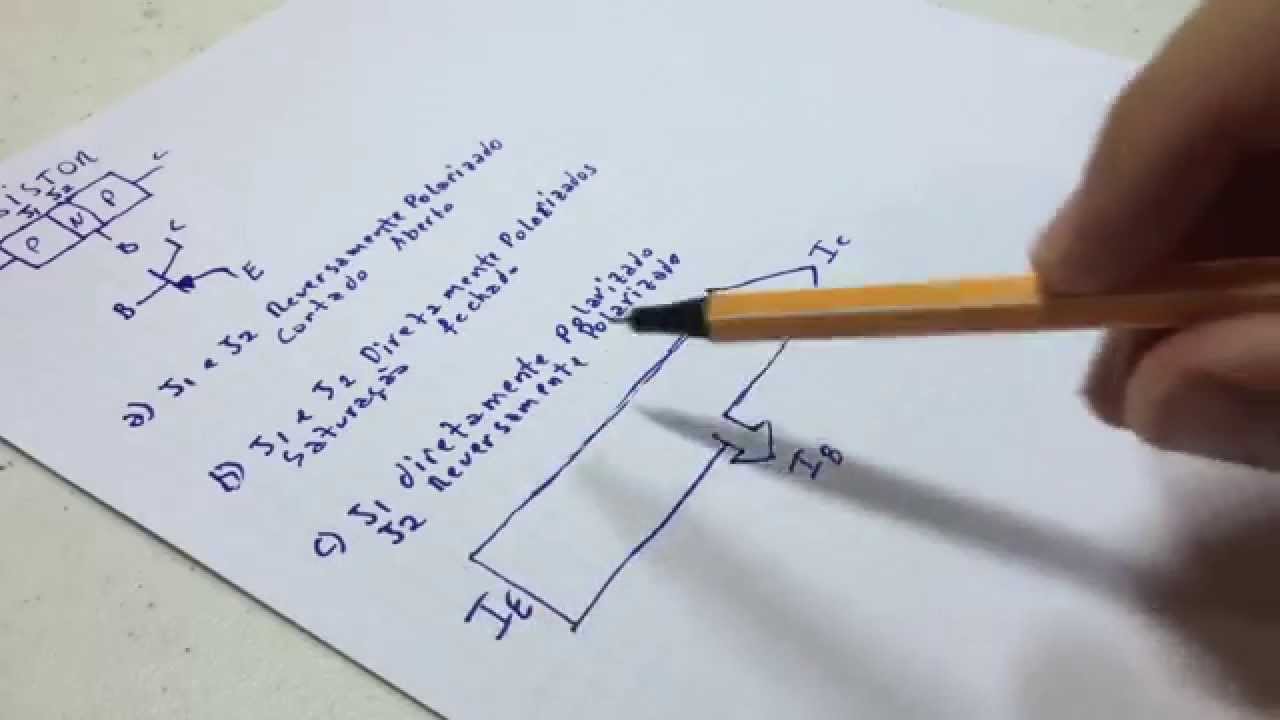 SISTOR
J1 J2
P N P
C
B
C
E
B
a) J1 e J2 Reversamente Polarizado
Cortado Aberto
b) J1 e J2 Diretamente Polarizados
Saturação fechado
c) J1 diretamente Polarizado
J2 Reversamente Polarizado
Ic
IB
IE